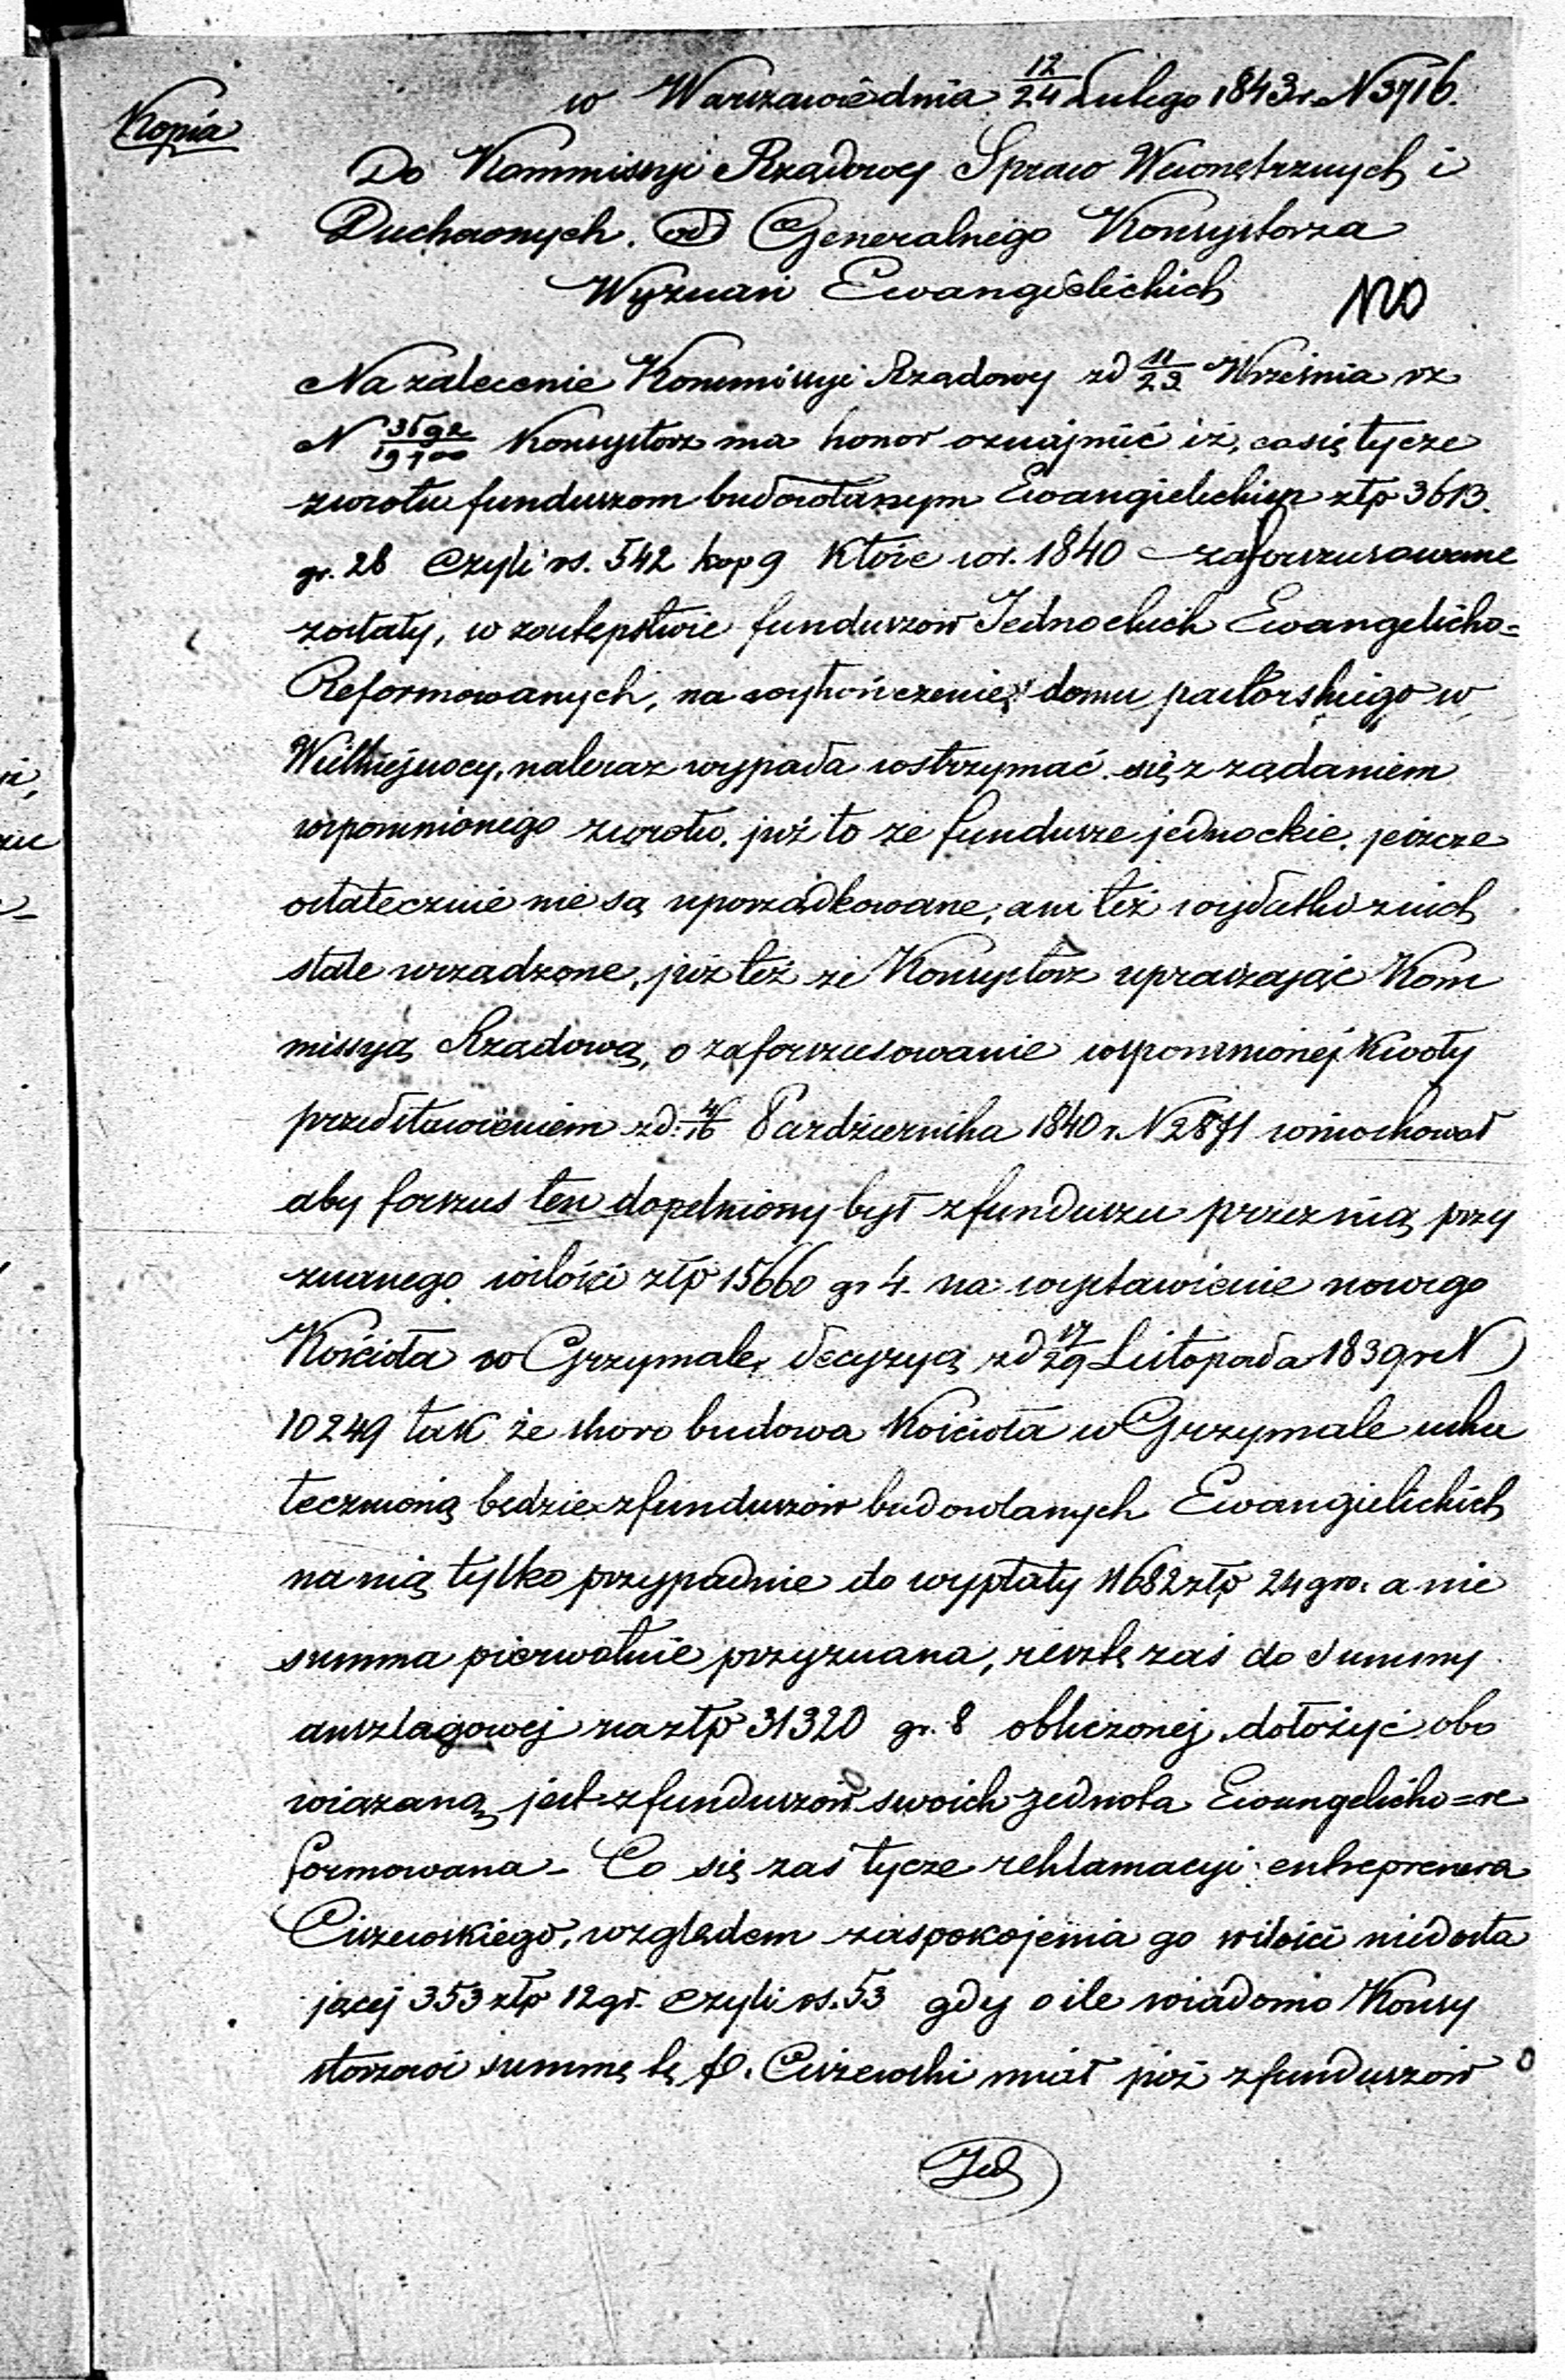 Kopia
w Warszawie dnia 12/24 Lutego 1843 r. N 3716.
Do Kommissyi Rządowey Spraw Wewnętrznych i
Duchownych. od Generalnego Konsystorza
Wyznań Ewangielickich
Na zalecenie Kommissyi Rządowey zd 11/23 Września rz
N Konsystorz ma honor oznajmić iż, co się tycze
zwrotu funduszom budowlanym Ewangielickim złp 3613.
gr. 28 czyli rs. 542 kop 9 które w r. 1840 zaforszusowane
zostały, w zastępstwie funduszów Jednockich Ewangelicko=
Reformowanych, na wykończenie domu pastorskiego w
Wielkiejnocy, naleraz wypada wstrzymać się z żądaniem
wspomnionego zwrotu, już to że fundusze jednockie, jeszcze
ostatecznie nie są uporządkowane, ani też wydatki z nich
stale urządzone, już też że Konsystorz upraszając Kom
missyą Rządową, o zaforszusowanie wspomnionej kwoty
przedstawieniem zd: 4/16 Pazdziernika 1840 r. N 2871 wnioskował
aby forszus ten dopełniony był z funduszu przez nią przy
znanego w ilości złp 15660 gr 4. na wystawienie nowego
Kościoła w Grzymale, decyzyą zd 17/29 Listopada 1839 r N
10249 tak że skoro budowa Kościoła w Grzymale usku
tecznioną będzie z funduszów budowlanych Ewangielickich
na nią tylko przypadnie do wypłaty 11682 złp 24 gro. a nie
summa pierwotnie przyznana, resztę zaś do summy
anszlagowej na złp 31320 gr. 8 obliczonej dołożyć obo
wiązaną jest z funduszów swoich Jednota Ewangelicko=re
formowana - Co się zaś tycze reklamacyi entreprenera
Ciszewskiego, względem zaspokojenia go w ilości niedosta
jącej 353 złp 12 gr. czyli rs. 53 gdy o ile wiadomo Konsy
storzowi summę tę p. Ciszewski miał już z funduszów
Jed